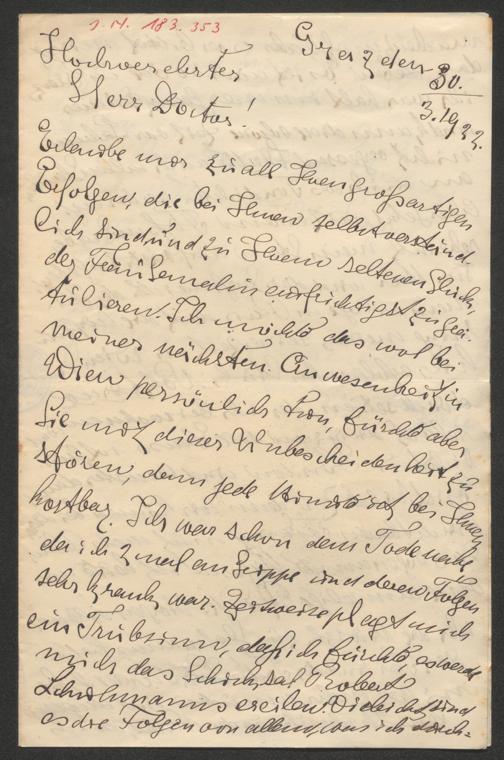 I. N. 183.353
Graz den 30.
3.1932.
Hochverehrter
Herr Doctor!
Erlaube mir zu all Ihren großartigen
Erfolgen, die bei Ihnen selbstverständ
lich sind und zu Ihrem seltenen Glück,
der Frau Gemalin aufrichtigst zu gra-
tulieren. Ich möchte das wol bei
meiner nächsten Anwesenheit in
Wien persönlich tun, fürchte aber
Sie mit dieser Unbescheidenheit zu
stören, denn jede Minute ist bei Ihnen
kostbar. Ich war schon dem Tode nahe
da ich 2 mal an Grippe und deren Folgen
sehr krank war. Zeitweise plagt mich
ein Trübsinn, daß ich fürchte, es werde
mich das Schicksal Robert
Schuhmanns ereilen. Vielleicht sind
es die Folgen von allem, was ich durch-